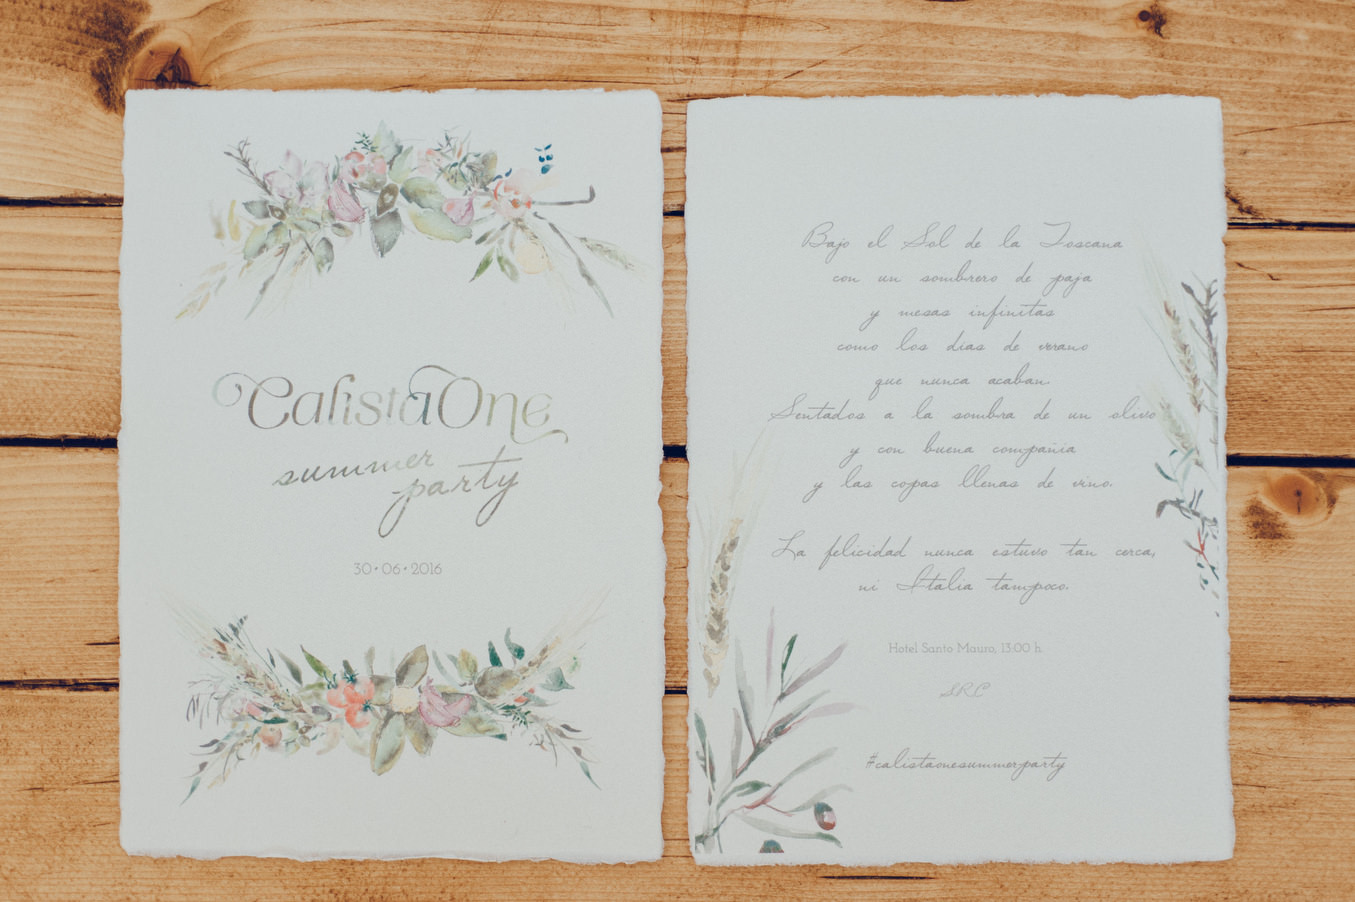 CalistaOne
summer
party
30•06•2016
Bajo el Sol de la Toscana
con un sombrero de paja
y mesas infinitas
como los días de verano
que nunca acaban.
Sentados a la sombra de un olivo
y con buena compañía
y las copas llenas de vino.
La felicidad nunca estuvo tan cerca,
ni Italia tampoco.
Hotel Santo Mauro, 13:00 h.
SRC
#calistaonesummerparty